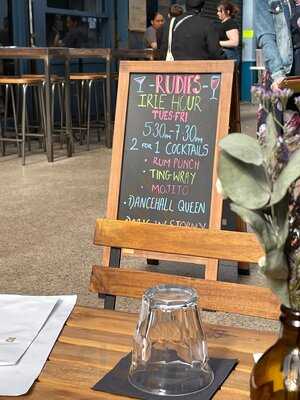 RUDIES
IRIE HOUR
TUES-FRI
5:30m-7:30m
2 FOR 1 COCKTAILS
• RUM PUNCH
• TING WRAY
• MOJITO
• DANCEHALL QUEEN
STORMY